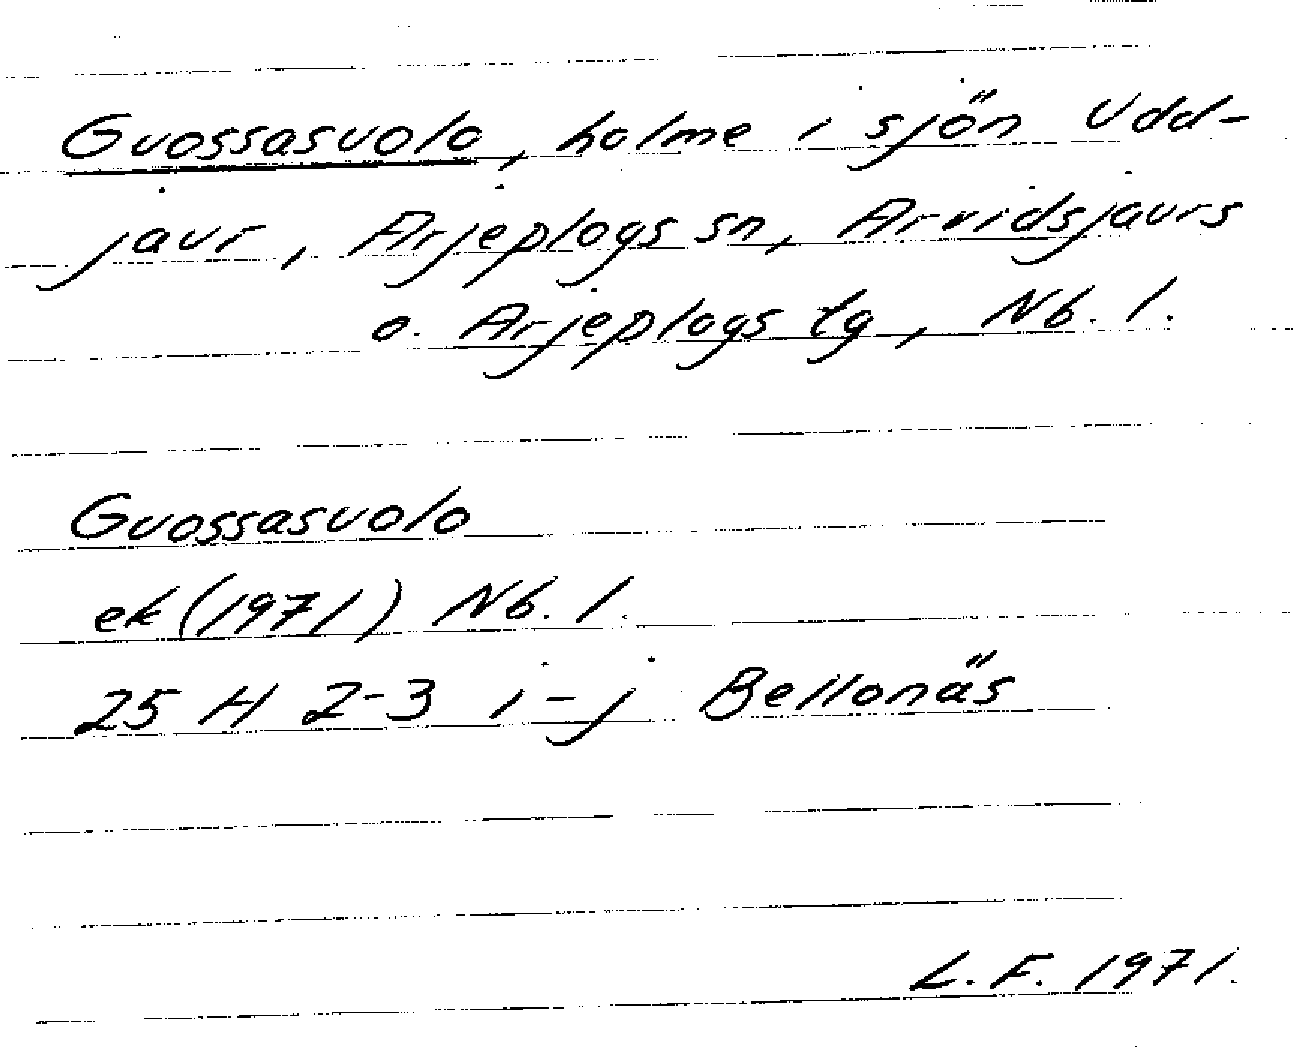 Guossasuolo, holme i sjön Udd-
jaur, Arjeplogs sn, Arvidsjaurs
o. Arjeplogs tg, Nb. l.
Guossasuolo
ek (1971) Nb. l.
25 H 2-3 i-j Bellonäs
L. F. 1971.